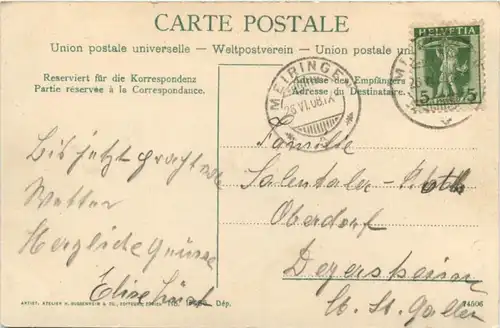 CARTE POSTALE
Union postale universelle – Weltpostverein – Union postale
Reserviert für die Korrespondenz
Partie réservée à la Correspondance.
Adresse des Empfängers
Adresse du Destinataire.
HELVETIA
5 5
MEIRINGEN
26.VI.08.IX
Bis jetzt prachtvolles
Wetter
Herzliche Grüsse
Elise
Familie
Oberdorf
Degersheim
Ct. St. Gallen
ARTIST. ATELIER H. GUGGENHEIM & CO., EDITEURS, ZÜRICH No. Dép.
14506